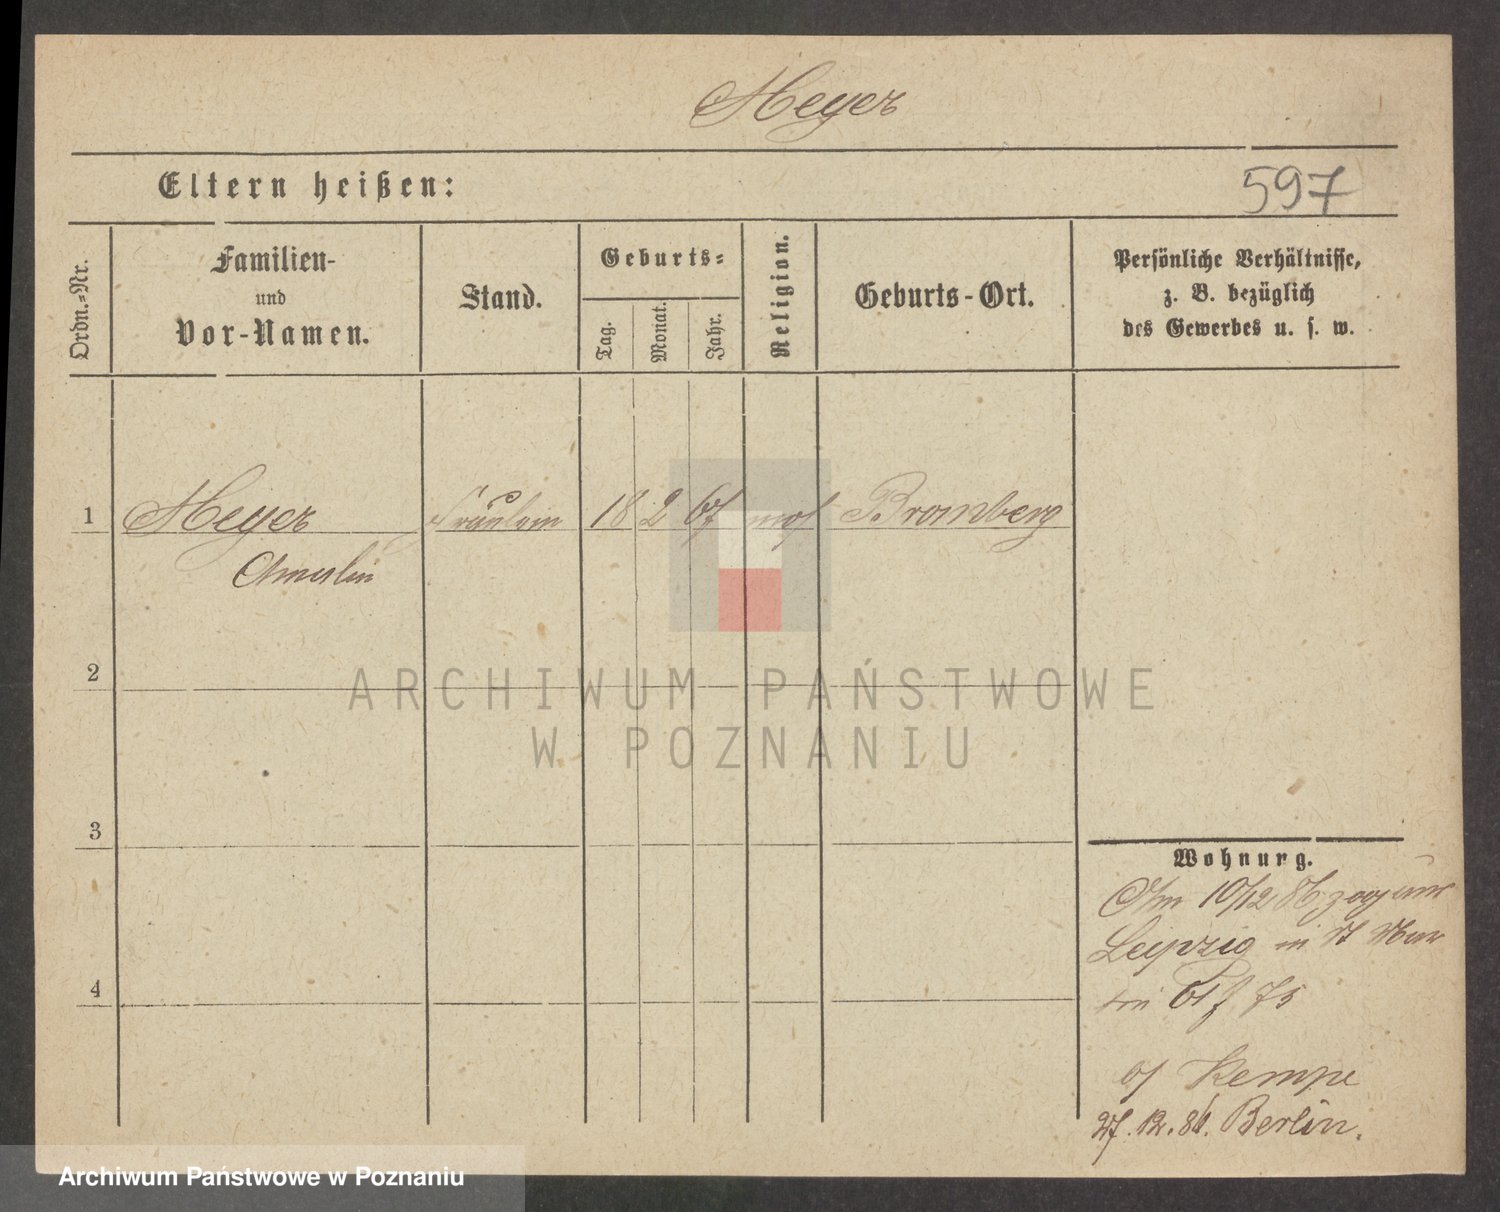 Meyer
Eltern heißen:
597
Ordn.=Nr.
Familien-
und
Vor-Namen.
Stand.
Geburts=
Tag.
Monat.
Jahr.
Religion.
Geburts-Ort.
Persönliche Verhältnisse,
z. B. bezüglich
des Gewerbes u. s. w.
1
Meyer
Fräulein
18
2
67
mos
Bromberg
2
ARCHIWUM PAŃSTWOWE
W POZNANIU
3
Wohnurg.
10/12 86
Leipzig in
4
75
Kempe
27. 12. 86. Berlin.
Archiwum Państwowe w Poznaniu